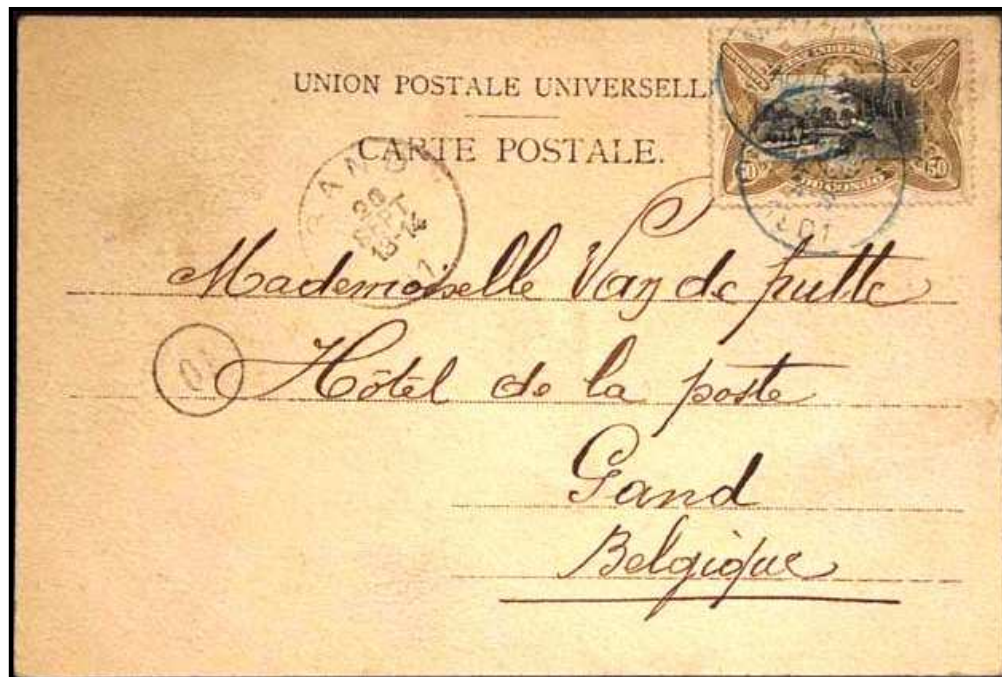 UNION POSTALE UNIVERSELLE
CARTE POSTALE.
50 50
DU CONGO
GAND
SEPT
13-14
Mademoiselle Van de putte
Hôtel de la poste
Gand
Belgique